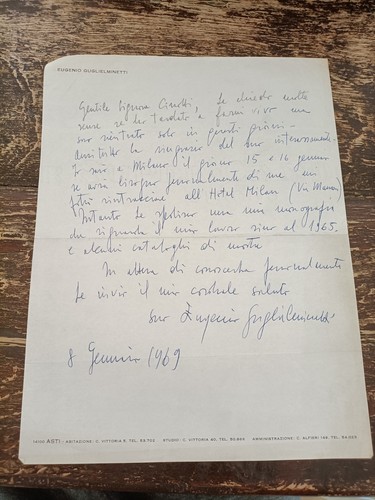 EUGENIO GUGLIELMINETTI
Gentile Signora Cianotti, Le chiedo molte
scuse se ho tardato a farmi vivo ma
son rientrato solo in questi giorni -
anzitutto la ringrazio del suo interessamento.
Io sarò a Milano il giorno 15 e 16 gennaio
se avrà bisogno personalmente di me mi
potrà rintracciare all'Hotel Milan (Via Manzoni)
Intanto Le spedisco una mia monografia
che riguarda il mio lavoro sino al 1965.
e alcuni cataloghi di mostre
In attesa di conoscerla personalmente
Le invio il mio cordiale saluto
suo Eugenio Guglielminetti
8 Gennaio 1969
14100 ASTI - ABITAZIONE: C. VITTORIA TEL. STUDIO: C. VITTORIA TEL. AMMINISTRAZIONE: C. ALFIERI TEL.